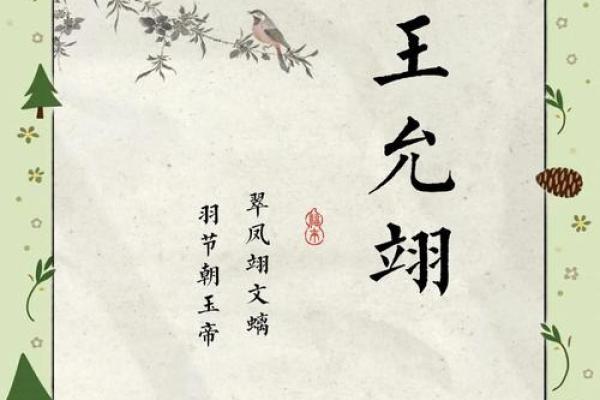 王允翊
翠凤翊文螭
羽节朝玉帝